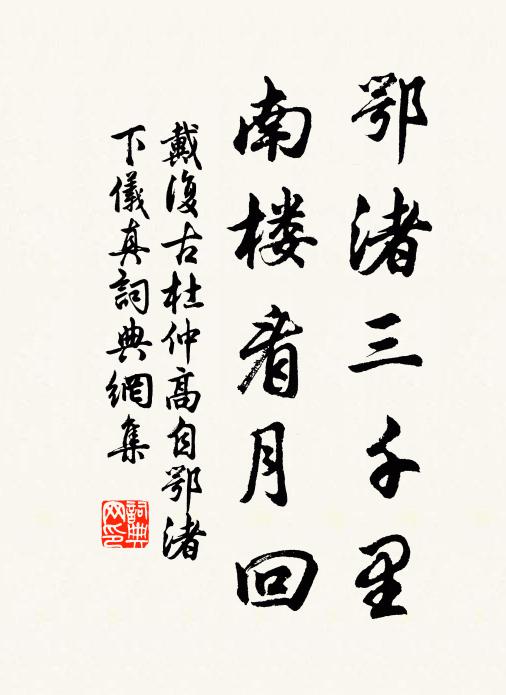 鄂渚三千里
南楼看月回
戴復古杜仲高自鄂渚
下儀真詞典網集
詞典
网印